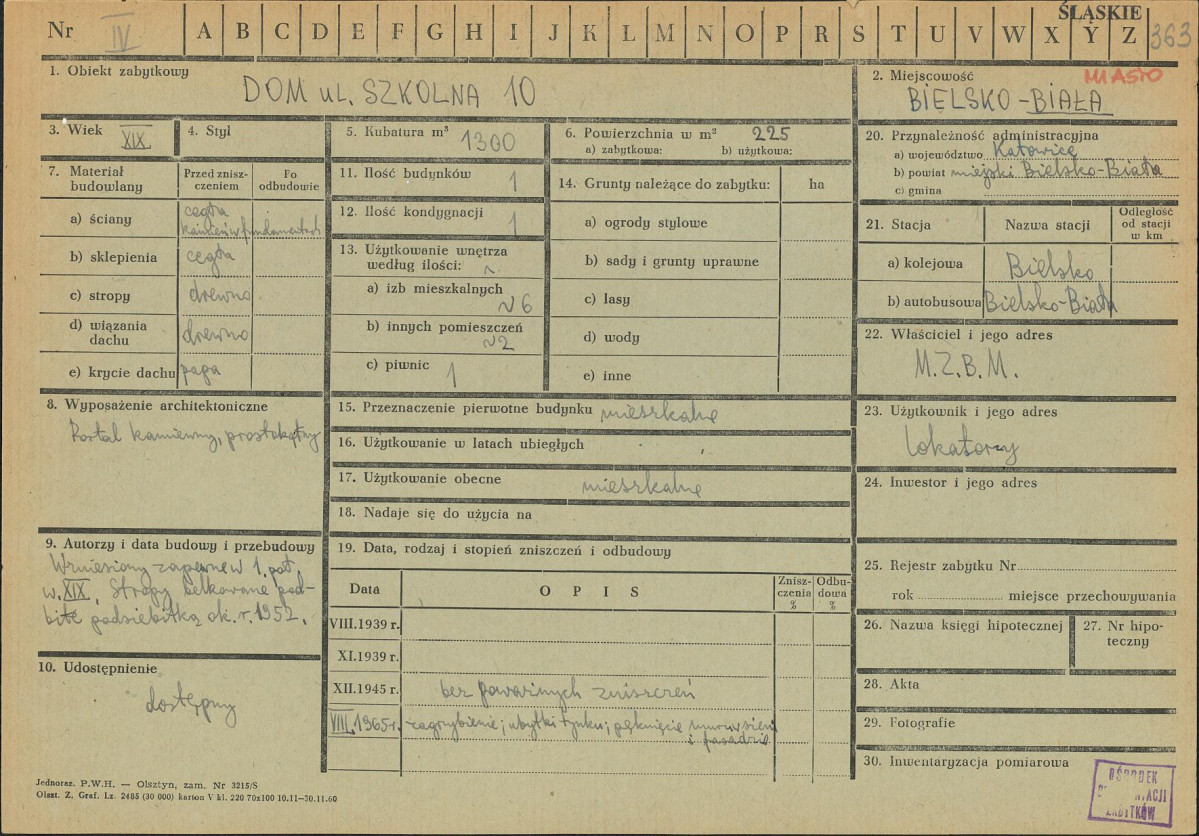 Nr IV A B C D E F G H I J K L M N O P R S T U V W X Y Z ŚLĄSKIE 363
1. Obiekt zabytkowy
DOM ul. SZKOLNA 10
2. Miejscowość MIASTO
BIELSKO-BIAŁA
3. Wiek XIX
4. Styl
5. Kubatura m³ 1300
6. Powierzchnia w m² 225
a) zabytkowa: b) użytkowa:
20. Przynależność administracyjna
a) województwo Katowice
b) powiat miejski Bielsko-Biała
c) gmina
7. Materiał budowlany
Przed zniszczeniem
Po odbudowie
a) ściany cegła
kamień w fundamentach
b) sklepienia cegła
c) stropy drewno
d) wiązania dachu drewno
e) krycie dachu papa
11. Ilość budynków 1
12. Ilość kondygnacji 1
13. Użytkowanie wnętrza
według ilości:
a) izb mieszkalnych
~6
b) innych pomieszczeń
~2
c) piwnic 1
14. Grunty należące do zabytku: ha
a) ogrody stylowe
b) sady i grunty uprawne
c) lasy
d) wody
e) inne
21. Stacja Nazwa stacji Odległość od stacji w km
a) kolejowa Bielsko
b) autobusowa Bielsko-Biała
22. Właściciel i jego adres
M.Z.B.M.
8. Wyposażenie architektoniczne
Portal kamienny, prostokątny
15. Przeznaczenie pierwotne budynku mieszkalne
16. Użytkowanie w latach ubiegłych
17. Użytkowanie obecne mieszkalne
18. Nadaje się do użycia na
23. Użytkownik i jego adres
lokatorzy
24. Inwestor i jego adres
9. Autorzy i data budowy i przebudowy
Wzniesiony zapewne w 1. poł.
w. XIX. Stropy belkowane pod-
bite podsiebitką ok. r. 1952.
10. Udostępnienie
dostępny
19. Data, rodzaj i stopień zniszczeń i odbudowy
Data OPIS Zniszczenia % Odbudowa %
VIII.1939 r.
XI.1939 r.
XII.1945 r. bez poważnych zniszczeń
VIII.1965 r. zagrzybienie; ubytki tynku; pęknięcie murów sieni
i fasadzie
25. Rejestr zabytku Nr
rok miejsce przechowywania
26. Nazwa księgi hipotecznej
27. Nr hipo-
teczny
28. Akta
29. Fotografie
30. Inwentaryzacja pomiarowa
Jednoraz. P.W.H. — Olsztyn, zam. Nr 3215/S
Olszt. Z. Graf. Lz. 2485 (30 000) karton V kl. 220 70x100 10.11—30.11.60
OŚRODEK
ZABYTKÓW